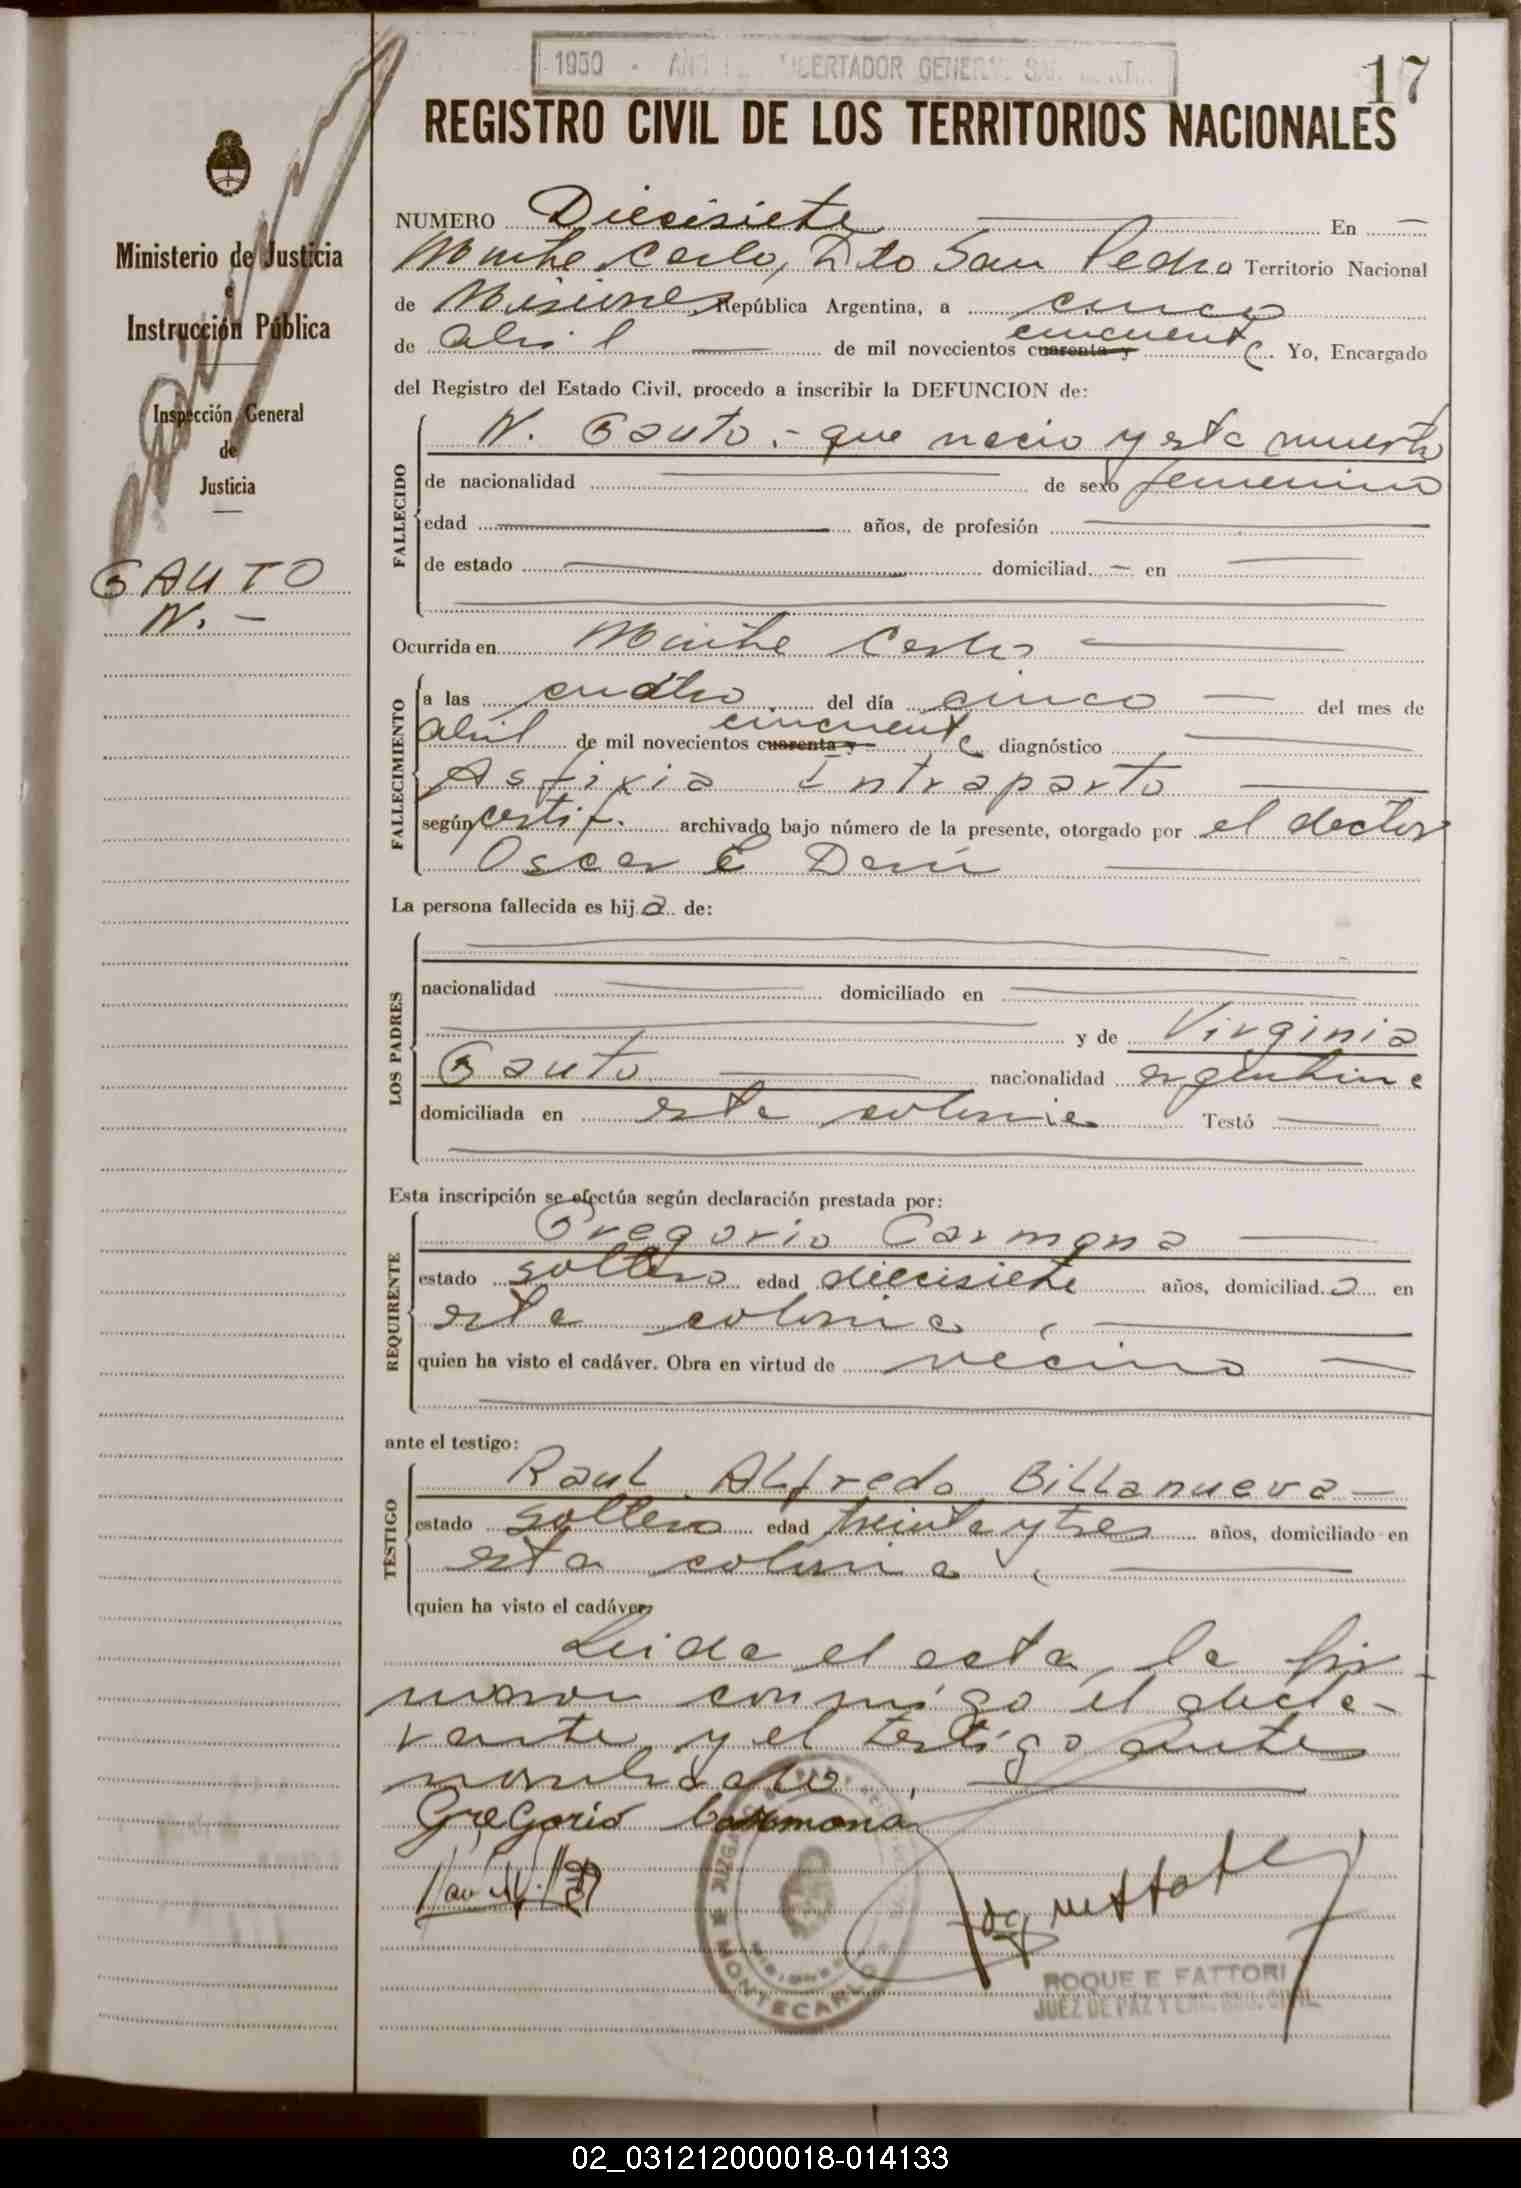 17
1950 - AÑO LIBERTADOR GENERAL SAN MARTIN
REGISTRO CIVIL DE LOS TERRITORIOS NACIONALES
Ministerio de Justicia
e
Instrucción Pública
Inspección General
de
Justicia
GAUTO
N. -
NUMERO Diecisiete En
Monte Carlo, Dto San Pedro Territorio Nacional
de Misiones República Argentina, a cinco
cincuenta
de abril de mil novecientos cuarenta y Yo, Encargado
del Registro del Estado Civil, procedo a inscribir la DEFUNCION de:
FALLECIDO
N. Gauto.- que nacio y esta muerta
de nacionalidad de sexo femenino
edad años, de profesión
de estado domiciliad en
Ocurrida en Monte Carlo
FALLECIMIENTO
a las cuatro del día cinco del mes de
cincuenta
abril de mil novecientos cuarenta y diagnóstico
Asfixia intraparto
según certif. archivado bajo número de la presente, otorgado por el doctor
Oscar E
La persona fallecida es hija de:
LOS PADRES
nacionalidad domiciliado en
y de Virginia
Gauto nacionalidad argentina
domiciliada en esta colonia Testó
Esta inscripción se efectúa según declaración prestada por:
REQUIRENTE
Gregorio Carmona
estado soltero edad diecisiete años, domiciliado en
esta colonia,
quien ha visto el cadáver. Obra en virtud de vecino
ante el testigo:
TESTIGO
Raul Alfredo Billanueva
estado soltero edad treinta y tres años, domiciliado en
esta colonia,
quien ha visto el cadáver
Leida el acta, la fir-
maron conmigo el decla-
rante y el testigo antes
nombrado.
Gregorio Carmona
JUZGADO
MISIONES
MONTECARLO
ROQUE E FATTORI
JUEZ DE PAZ Y ENC. REG. CIVIL
02_031212000018-014133